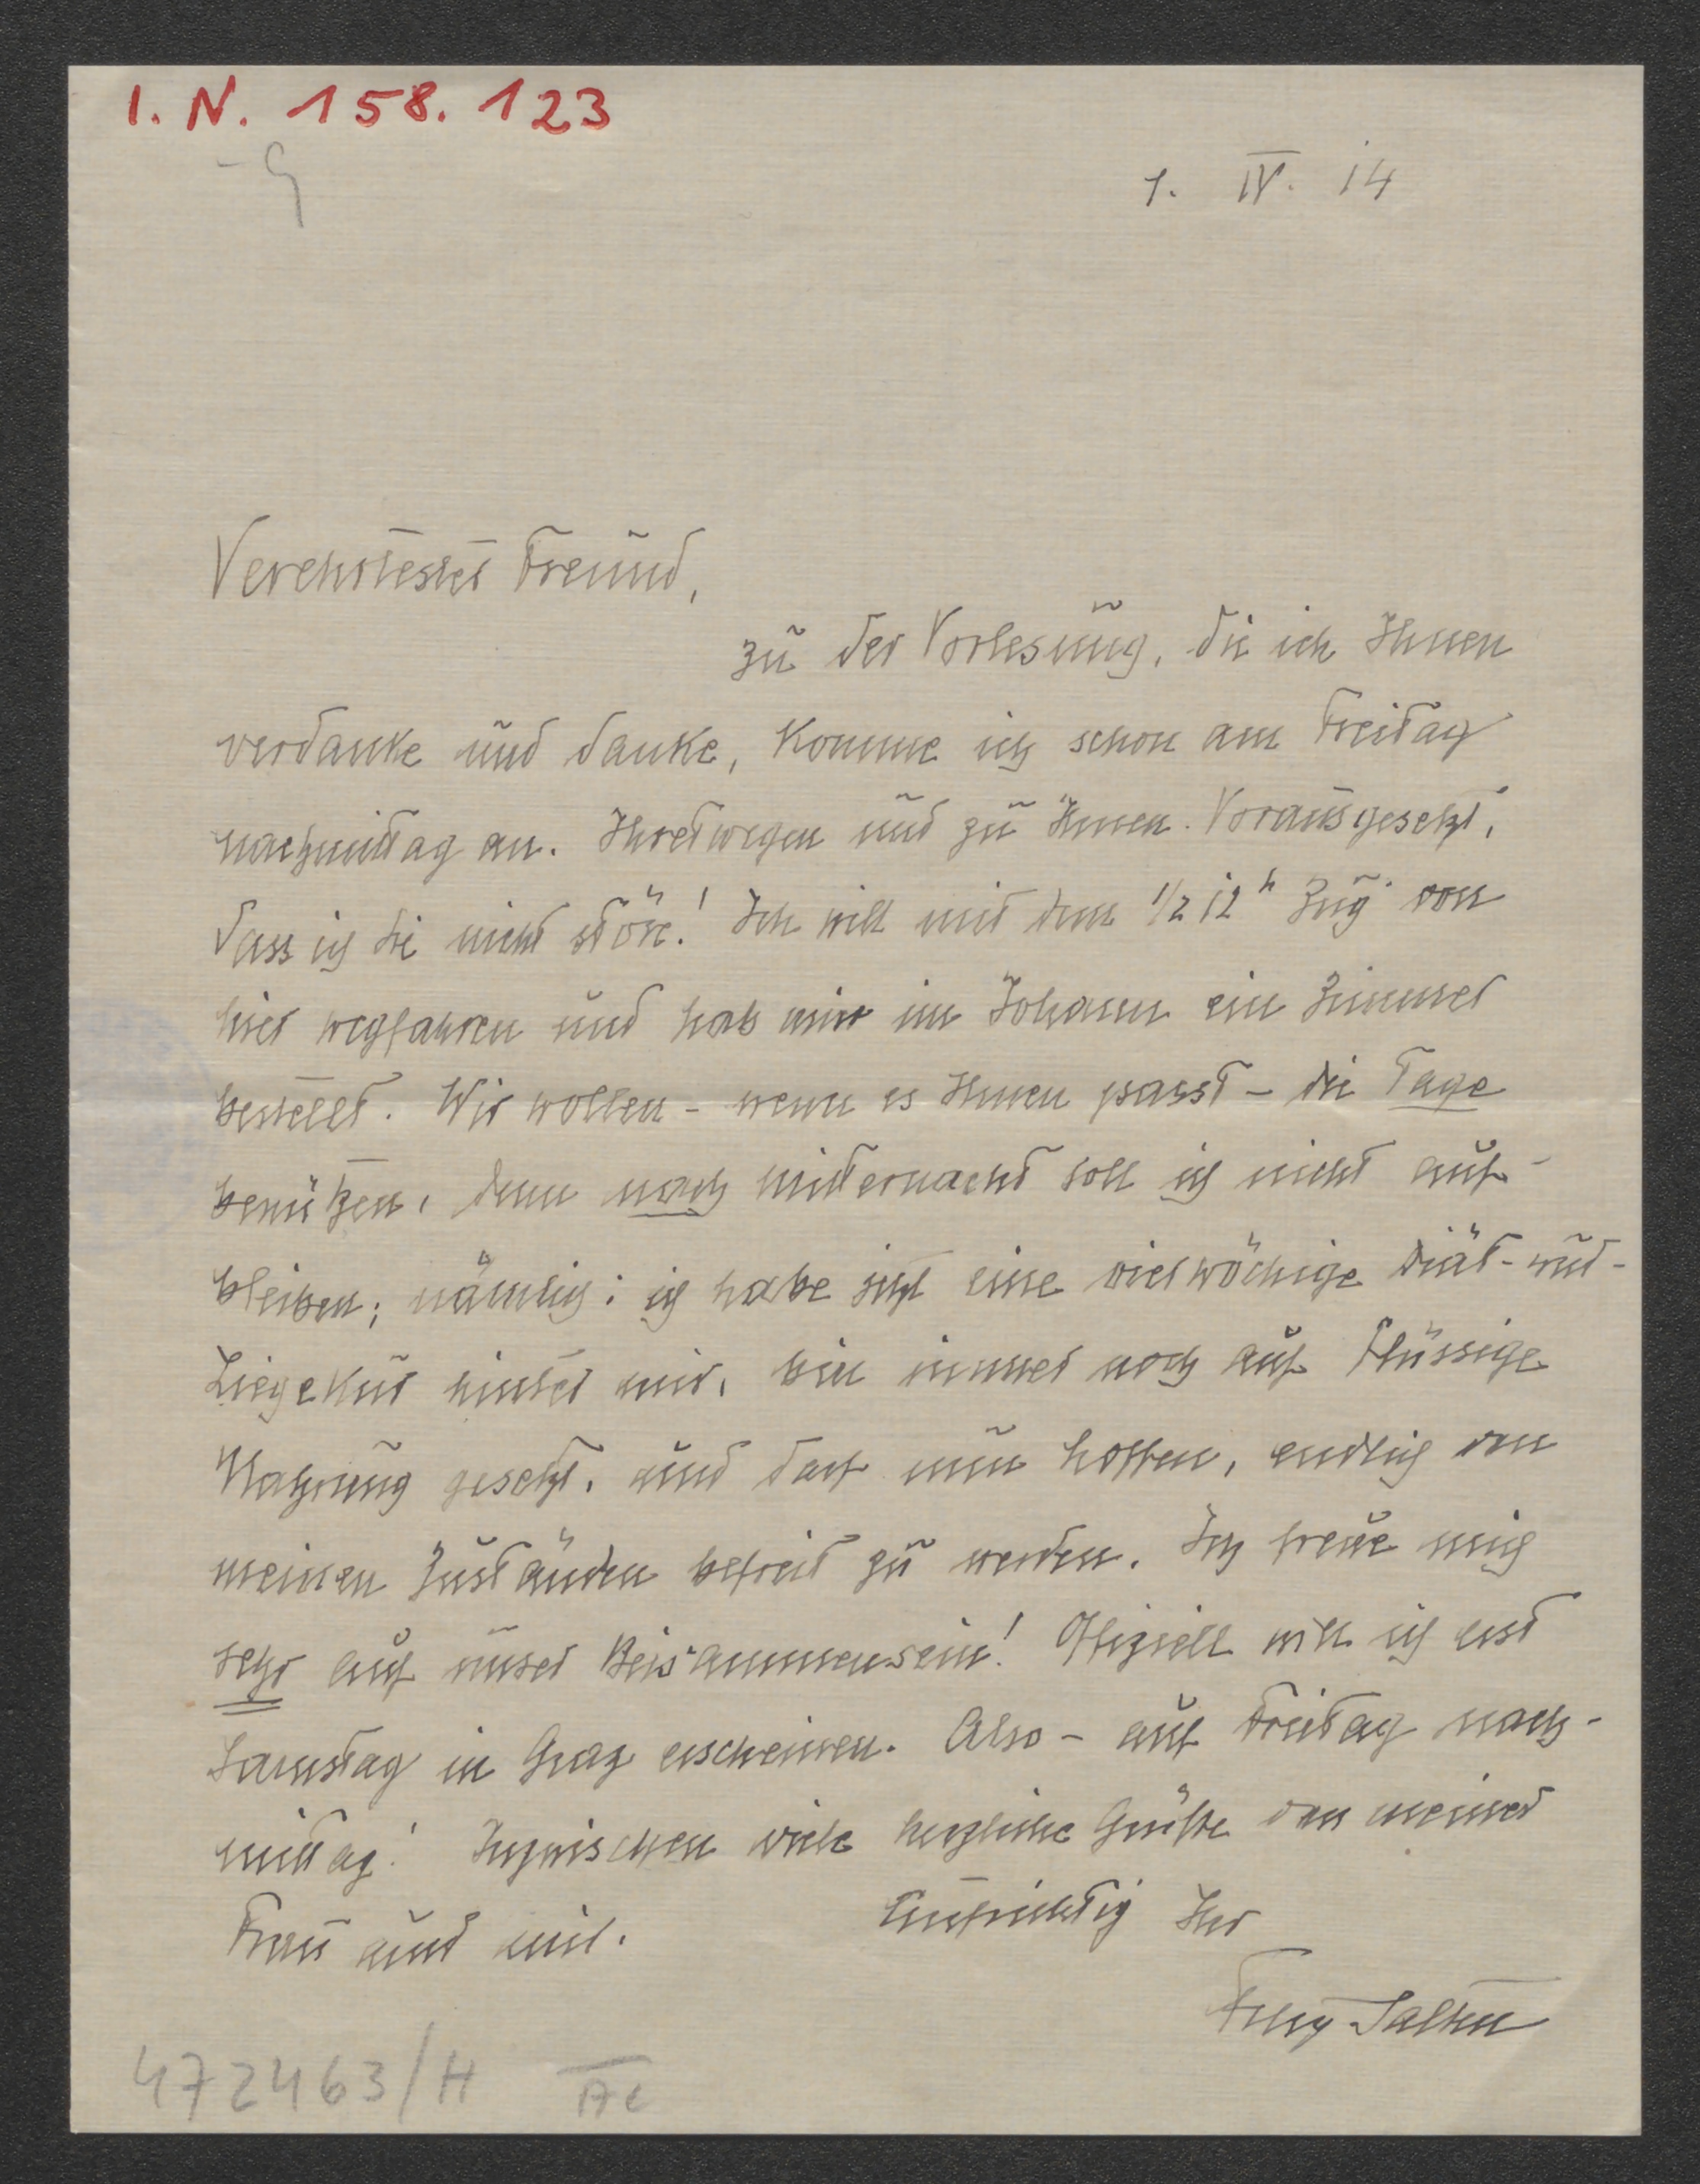 I. N. 158. 123
1. IV. 14
Verehrtester Freund,
zu der Vorlesung, die ich Ihnen
verdanke und danke, komme ich schon am Freitag
nachmittag an. Ihretwegen und zu Ihnen. Vorausgesetzt,
dass ich Sie nicht störe! Ich will mit dem 1/2 12h Zug von
hier wegfahren und hab mir im Johann ein Zimmer
bestellt. Wir wollen – wenn es Ihnen passt – die Tage
benützen, denn nach Mitternacht soll ich nicht auf-
bleiben; nämlich: ich habe jetzt eine vielwöchige Diät- und-
Liegekur hinter mir, bin immer noch auf flüssige
Nahrung gesetzt, und darf nun hoffen, endlich von
meinen Zuständen befreit zu werden. Ich freue mich
sehr auf unser Beisammensein! Offiziell will ich erst
Samstag in Graz erscheinen. Also – auf Freitag nach-
mittag! Inzwischen viele herzliche Grüße von meiner
Frau und mir.
Aufrichtig Ihr
Felix Salten
472463/H